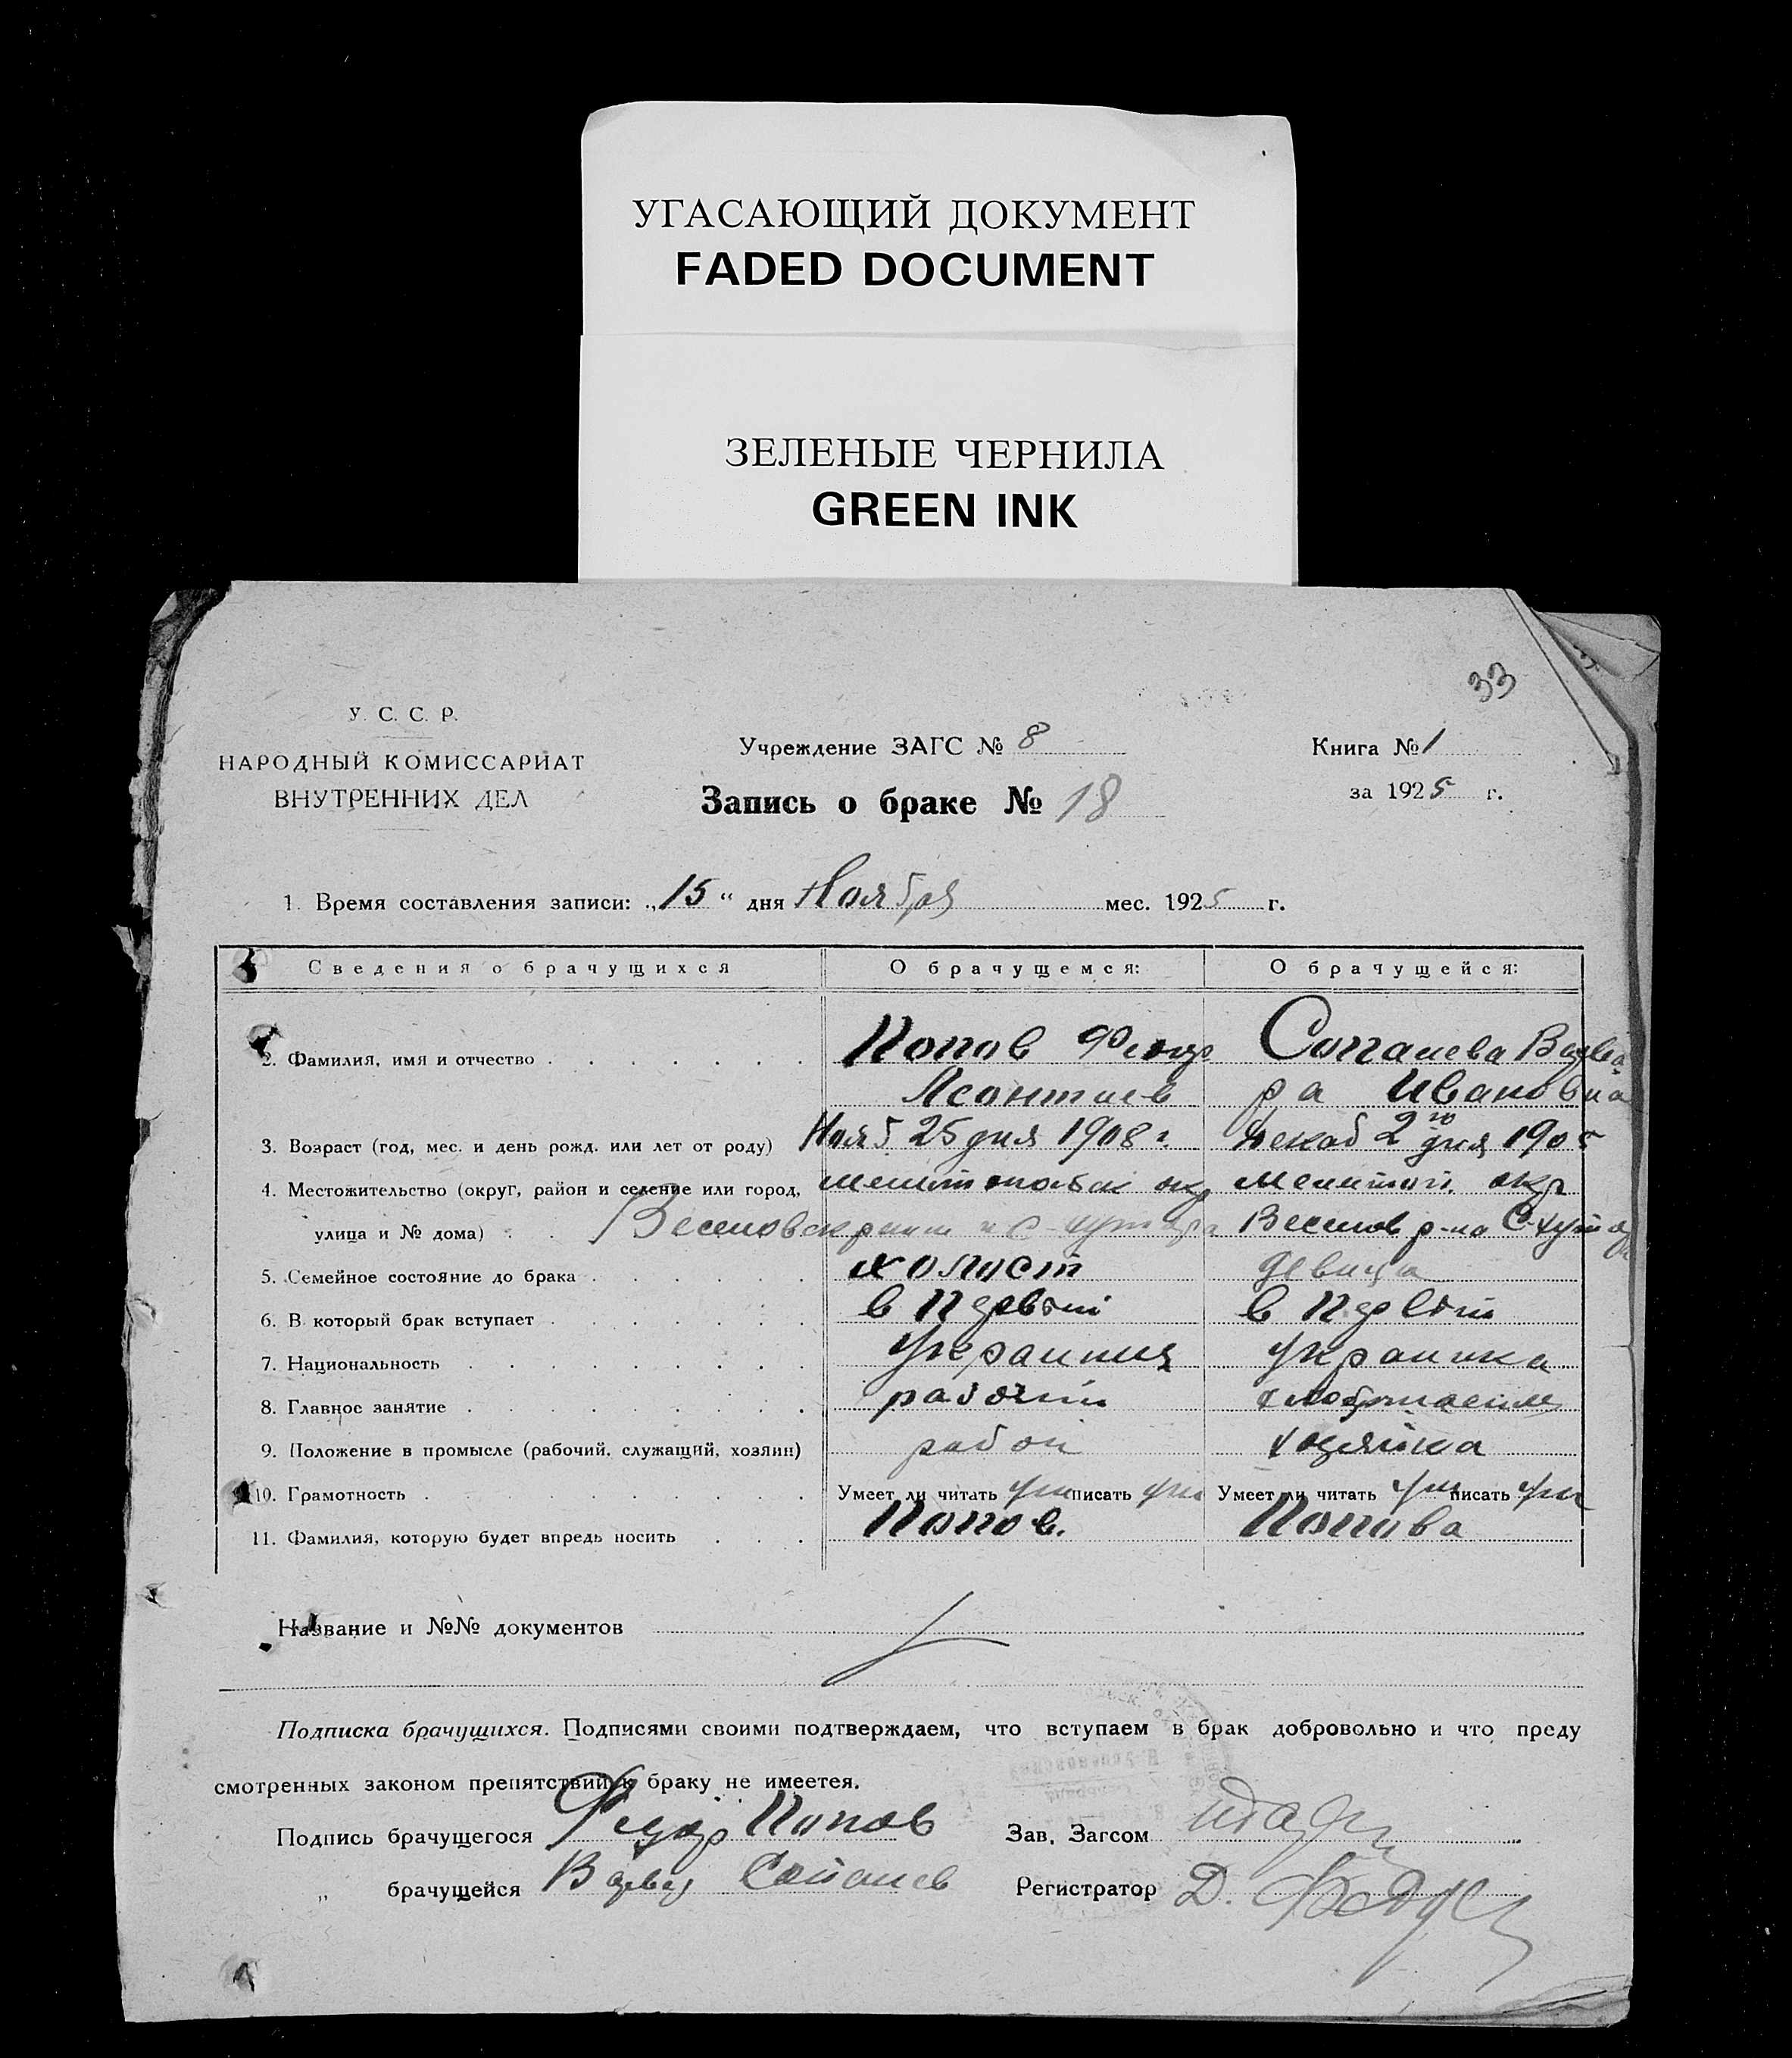 УГАСАЮЩИЙ ДОКУМЕНТ
FADED DOCUMENT
ЗЕЛЕНЫЕ ЧЕРНИЛА
GREEN INK
33
У. С. С. Р.
НАРОДНЫЙ КОМИССАРИАТ
ВНУТРЕННИХ ДЕЛ
Учреждение ЗАГС № 8
Запись о браке № 18
Книга № 1
за 1925 г.
1. Время составления записи: „15“ дня Ноября мес. 1925 г.
Сведения о брачущихся О брачущемся: О брачущейся:
2. Фамилия, имя и отчество Попов Феодр
Леонтиев ра Ивановна
3. Возраст (год, мес. и день рожд. или лет от роду) Нояб 25 дня 1908 г. Декаб 2го дня 1905
4. Местожительство (округ, район и селение или город, окр Мелитоп. окр
улица и № дома) р-на С-
5. Семейное состояние до брака холост девица
6. В который брак вступает в Первый в Первый
7. Национальность Украинец Украинка
8. Главное занятие рабочий
9. Положение в промысле (рабочий, служащий, хозяин) рабоч хозяйка
10. Грамотность Умеет ли читать писать Умеет ли читать писать
11. Фамилия, которую будет впредь носить Попов. Попова
Название и №№ документов
Подписка брачущихся. Подписями своими подтверждаем, что вступаем в брак добровольно и что преду
смотренных законом препятствий к браку не имеетея.
Подпись брачущегося Федор Попов Зав. Загсом
„ брачущейся Регистратор Д.